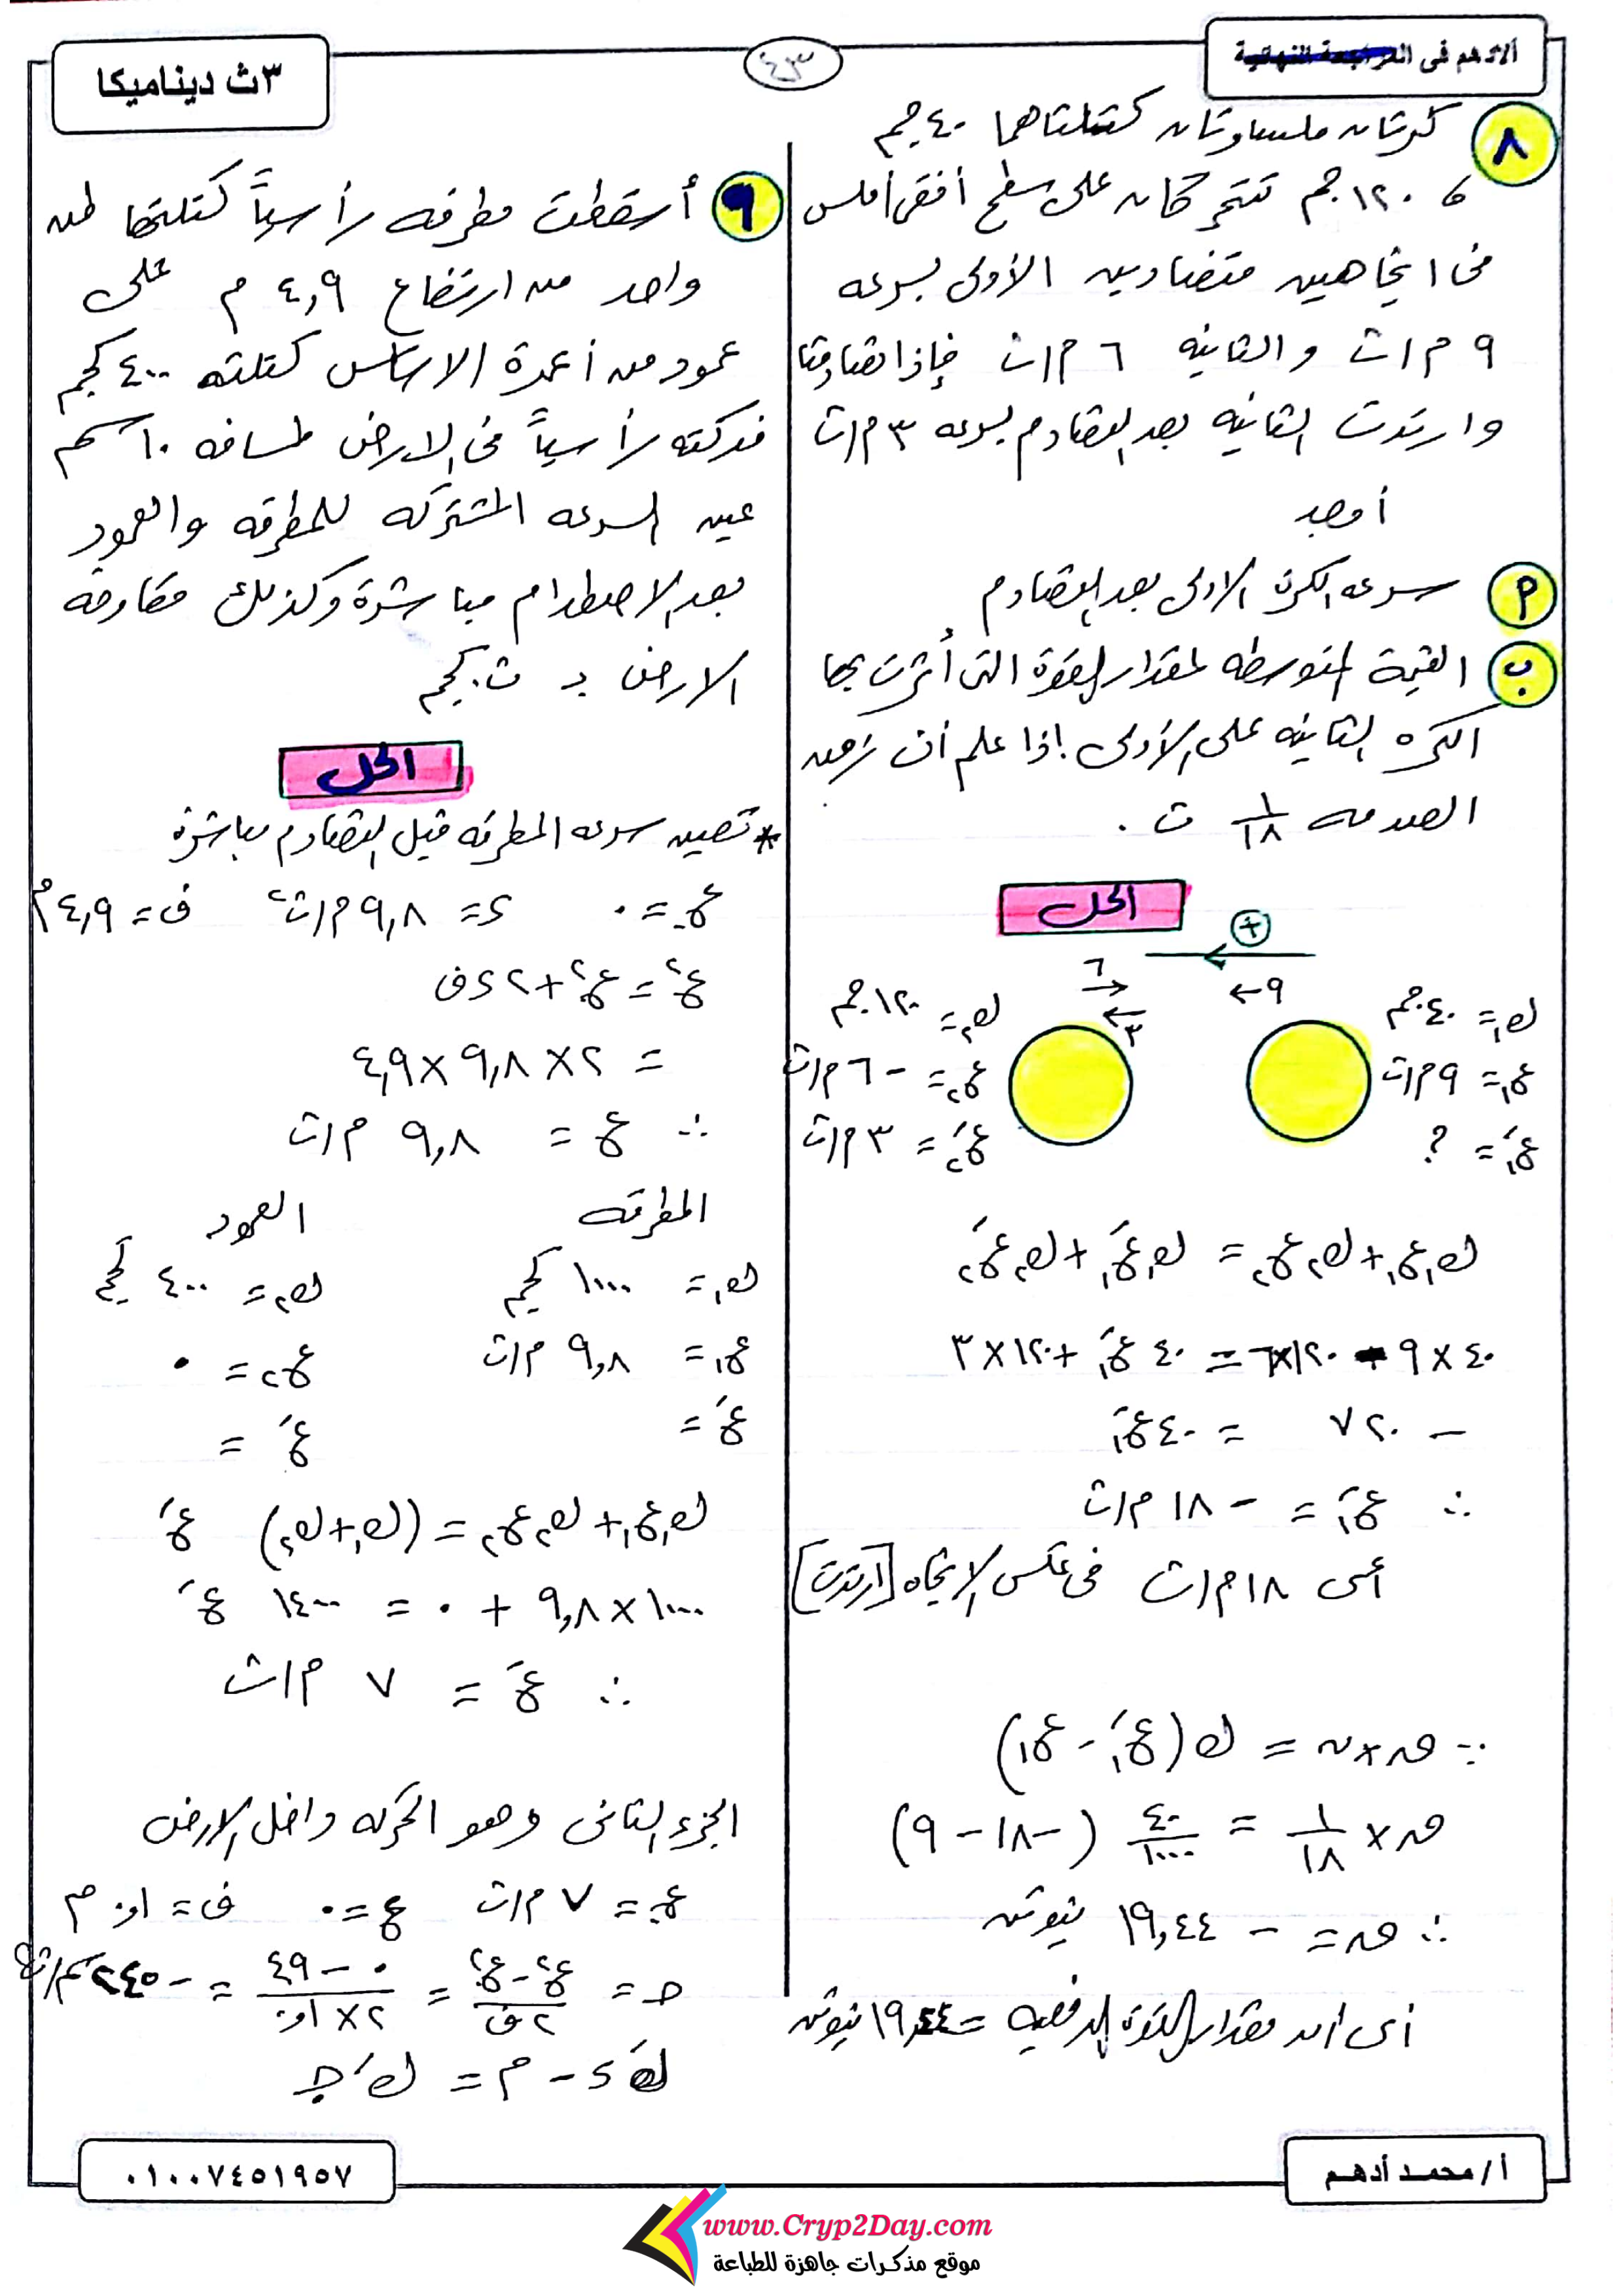 الأدهم فى المراجعة النهائية
٤٣
٣ث ديناميكا
٨ كرتان ملساوتان كتلتاهما ٤٠ جم
، ١٢٠ جم تتحركان على سطح أفقى أملس
فى اتجاهين متضادين الأولى بسرعه
٩ م/ث والثانيه ٦ م/ث فإذا تصادمتا
وارتدت الثانيه بعد التصادم بسرعه ٣ م/ث
أوجد
٢ سرعه الكرة الأولى بعد التصادم
ب القيمة المتوسطه لمقدار القوة التى أثرت بها
الكره الثانيه على الأولى إذا علم أن زمن
الصدمه ١/١٨ ث .
الحل
+
٦ ←٩
٣
ك١ = ٤٠ جم ك٢ = ١٢٠ جم
ع١ = ٩ م/ث ع٢ = - ٦ م/ث
ع١َ = ؟ ع٢َ = ٣ م/ث
ك١ع١ + ك٢ع٢ = ك١ع١َ + ك٢ع٢َ
٤٠ × ٩ - ١٢٠×٦ = ٤٠ ع١َ + ١٢٠×٣
- ٧٢٠ = ٤٠ ع١َ
∴ ع١َ = - ١٨ م/ث
أى ١٨ م/ث فى عكس الإتجاه [ارتدت]
∵ ق×ن = ك(ع١َ - ع١)
ق × ١/١٨ = ٤٠/١٠٠٠ (-١٨ - ٩)
∴ ق = - ١٩,٤٤ نيوتن
أى أن مقدار القوة الدفعيه = ١٩,٤٤ نيوتن
٩ أسقطت مطرقه رأسياً كتلتها طن
واحد من ارتفاع ٤,٩ م على
عمود من أعمدة الاساس كتلته ٤٠٠ كجم
فدكته رأسياً فى الارض لمسافه ١٠ سم
عين السرعه المشتركه للمطرقه والعمود
بعد الاصطدام مباشرة وكذلك مقاومه
الارض بـ ث.كجم
الحل
* تعيين سرعه المطرقه قبل التصادم مباشرة
ع. = ٠ ء = ٩,٨ م/ث٢ ف = ٤,٩ م
ع٢ = ع.٢ + ٢ء ف
= ٢ × ٩,٨ × ٤,٩
∴ ع = ٩,٨ م/ث
المطرقه العمود
ك١ = ١٠٠٠ كجم ك٢ = ٤٠٠ كجم
ع١ = ٩,٨ م/ث ع٢ = ٠
عَ = عَ =
ك١ع١ + ك٢ع٢ = (ك١ + ك٢) عَ
١٠٠٠ × ٩,٨ + ٠ = ١٤٠٠ عَ
∴ عَ = ٧ م/ث
الجزء الثانى وهو الحركه داخل الارض
ع. = ٧ م/ث ع = ٠ ف = ٠,١ م
جـ = ع٢ - ع.٢/٢ف = ٠ - ٤٩/٢×٠,١ = - ٢٤٥ م/ث٢
كَ ء - م = كَ جـ
أ/ محمد أدهم
٠١٠٠٧٤٥١٩٥٧
www.Cryp2Day.com
موقع مذكرات جاهزة للطباعة